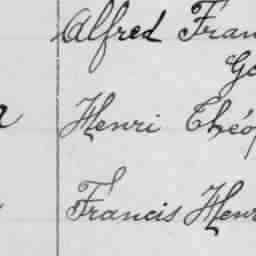 Alfred Fran
Go
Henri Théop
Francis Henr